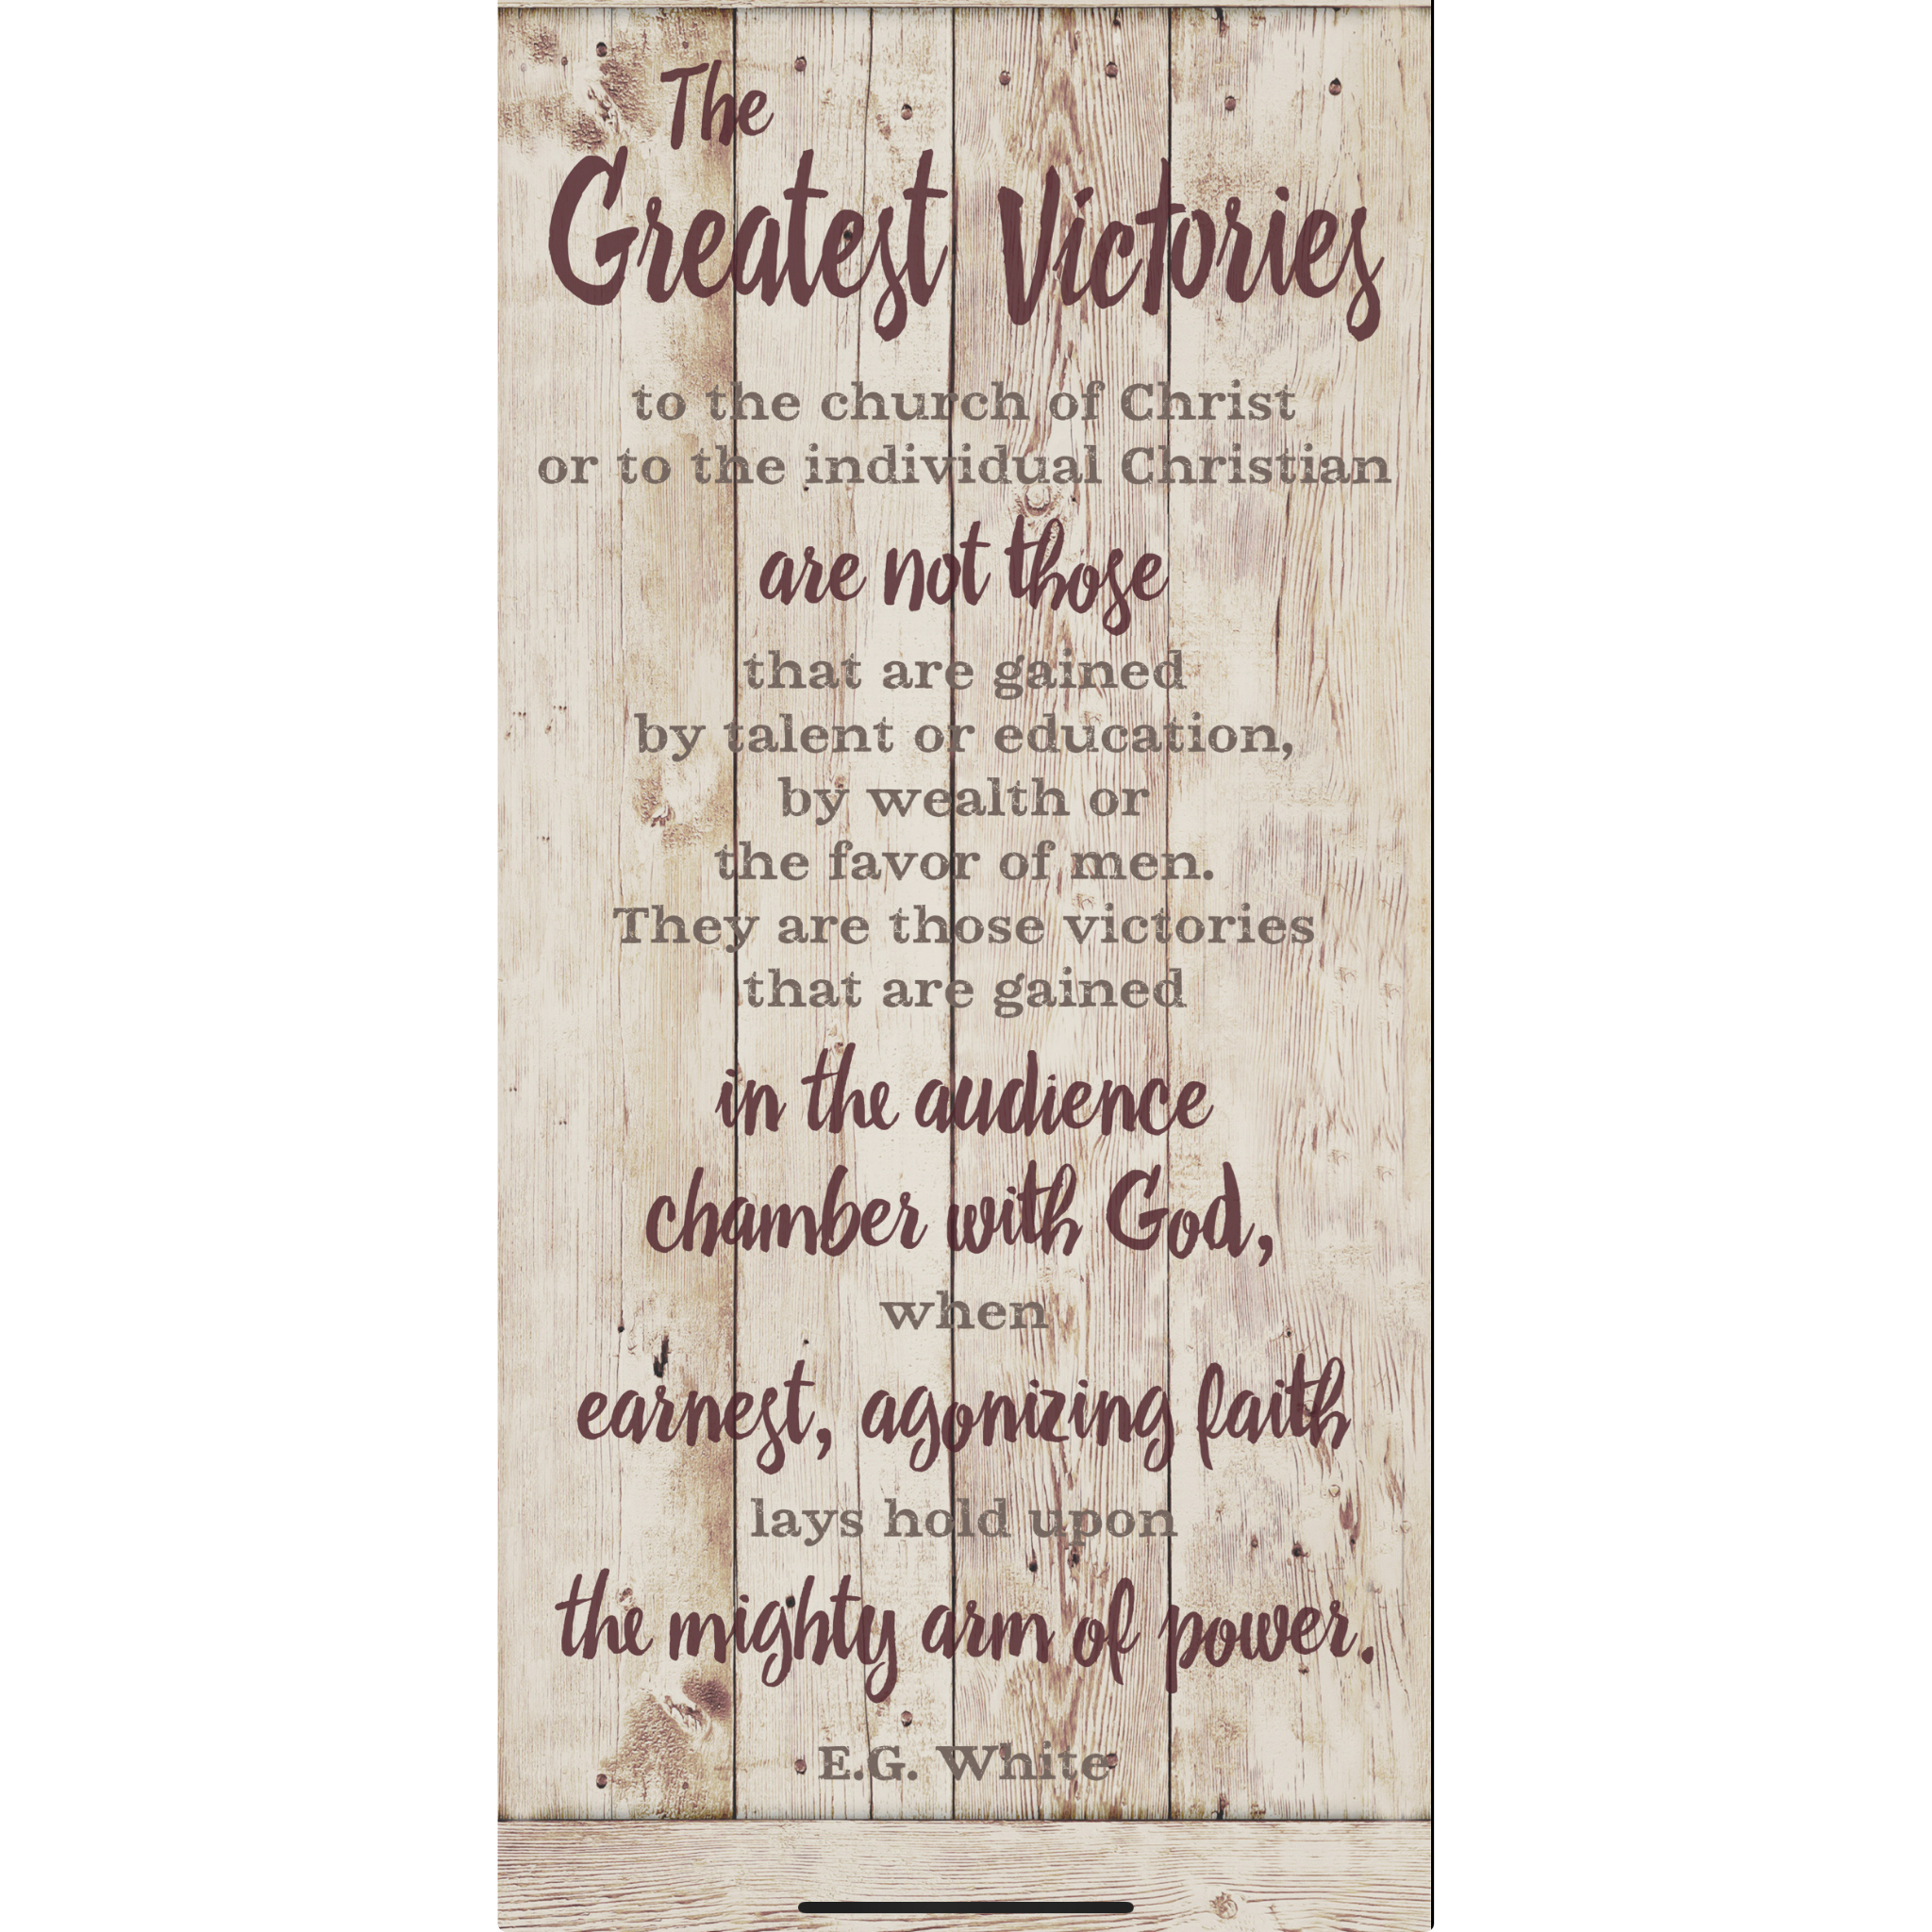 The
Greatest Victories
to the church of Christ
or to the individual Christian
are not those
that are gained
by talent or education,
by wealth or
the favor of men.
They are those victories
that are gained
in the audience
chamber with God,
when
earnest, agonizing faith
lays hold upon
the mighty arm of power.
E.G. White